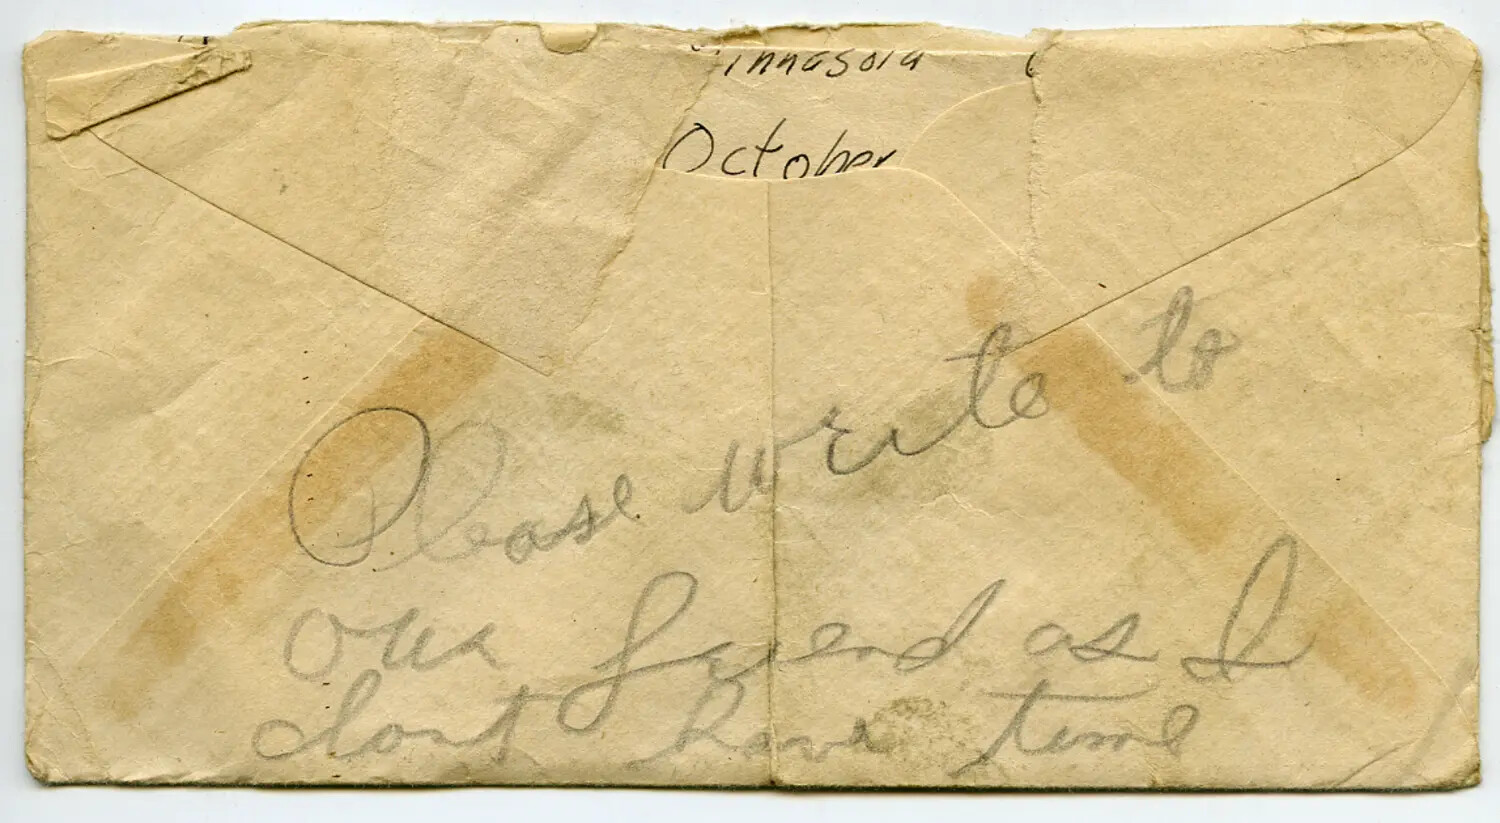 innasota
October
Please write to
our friend as I
dont have time